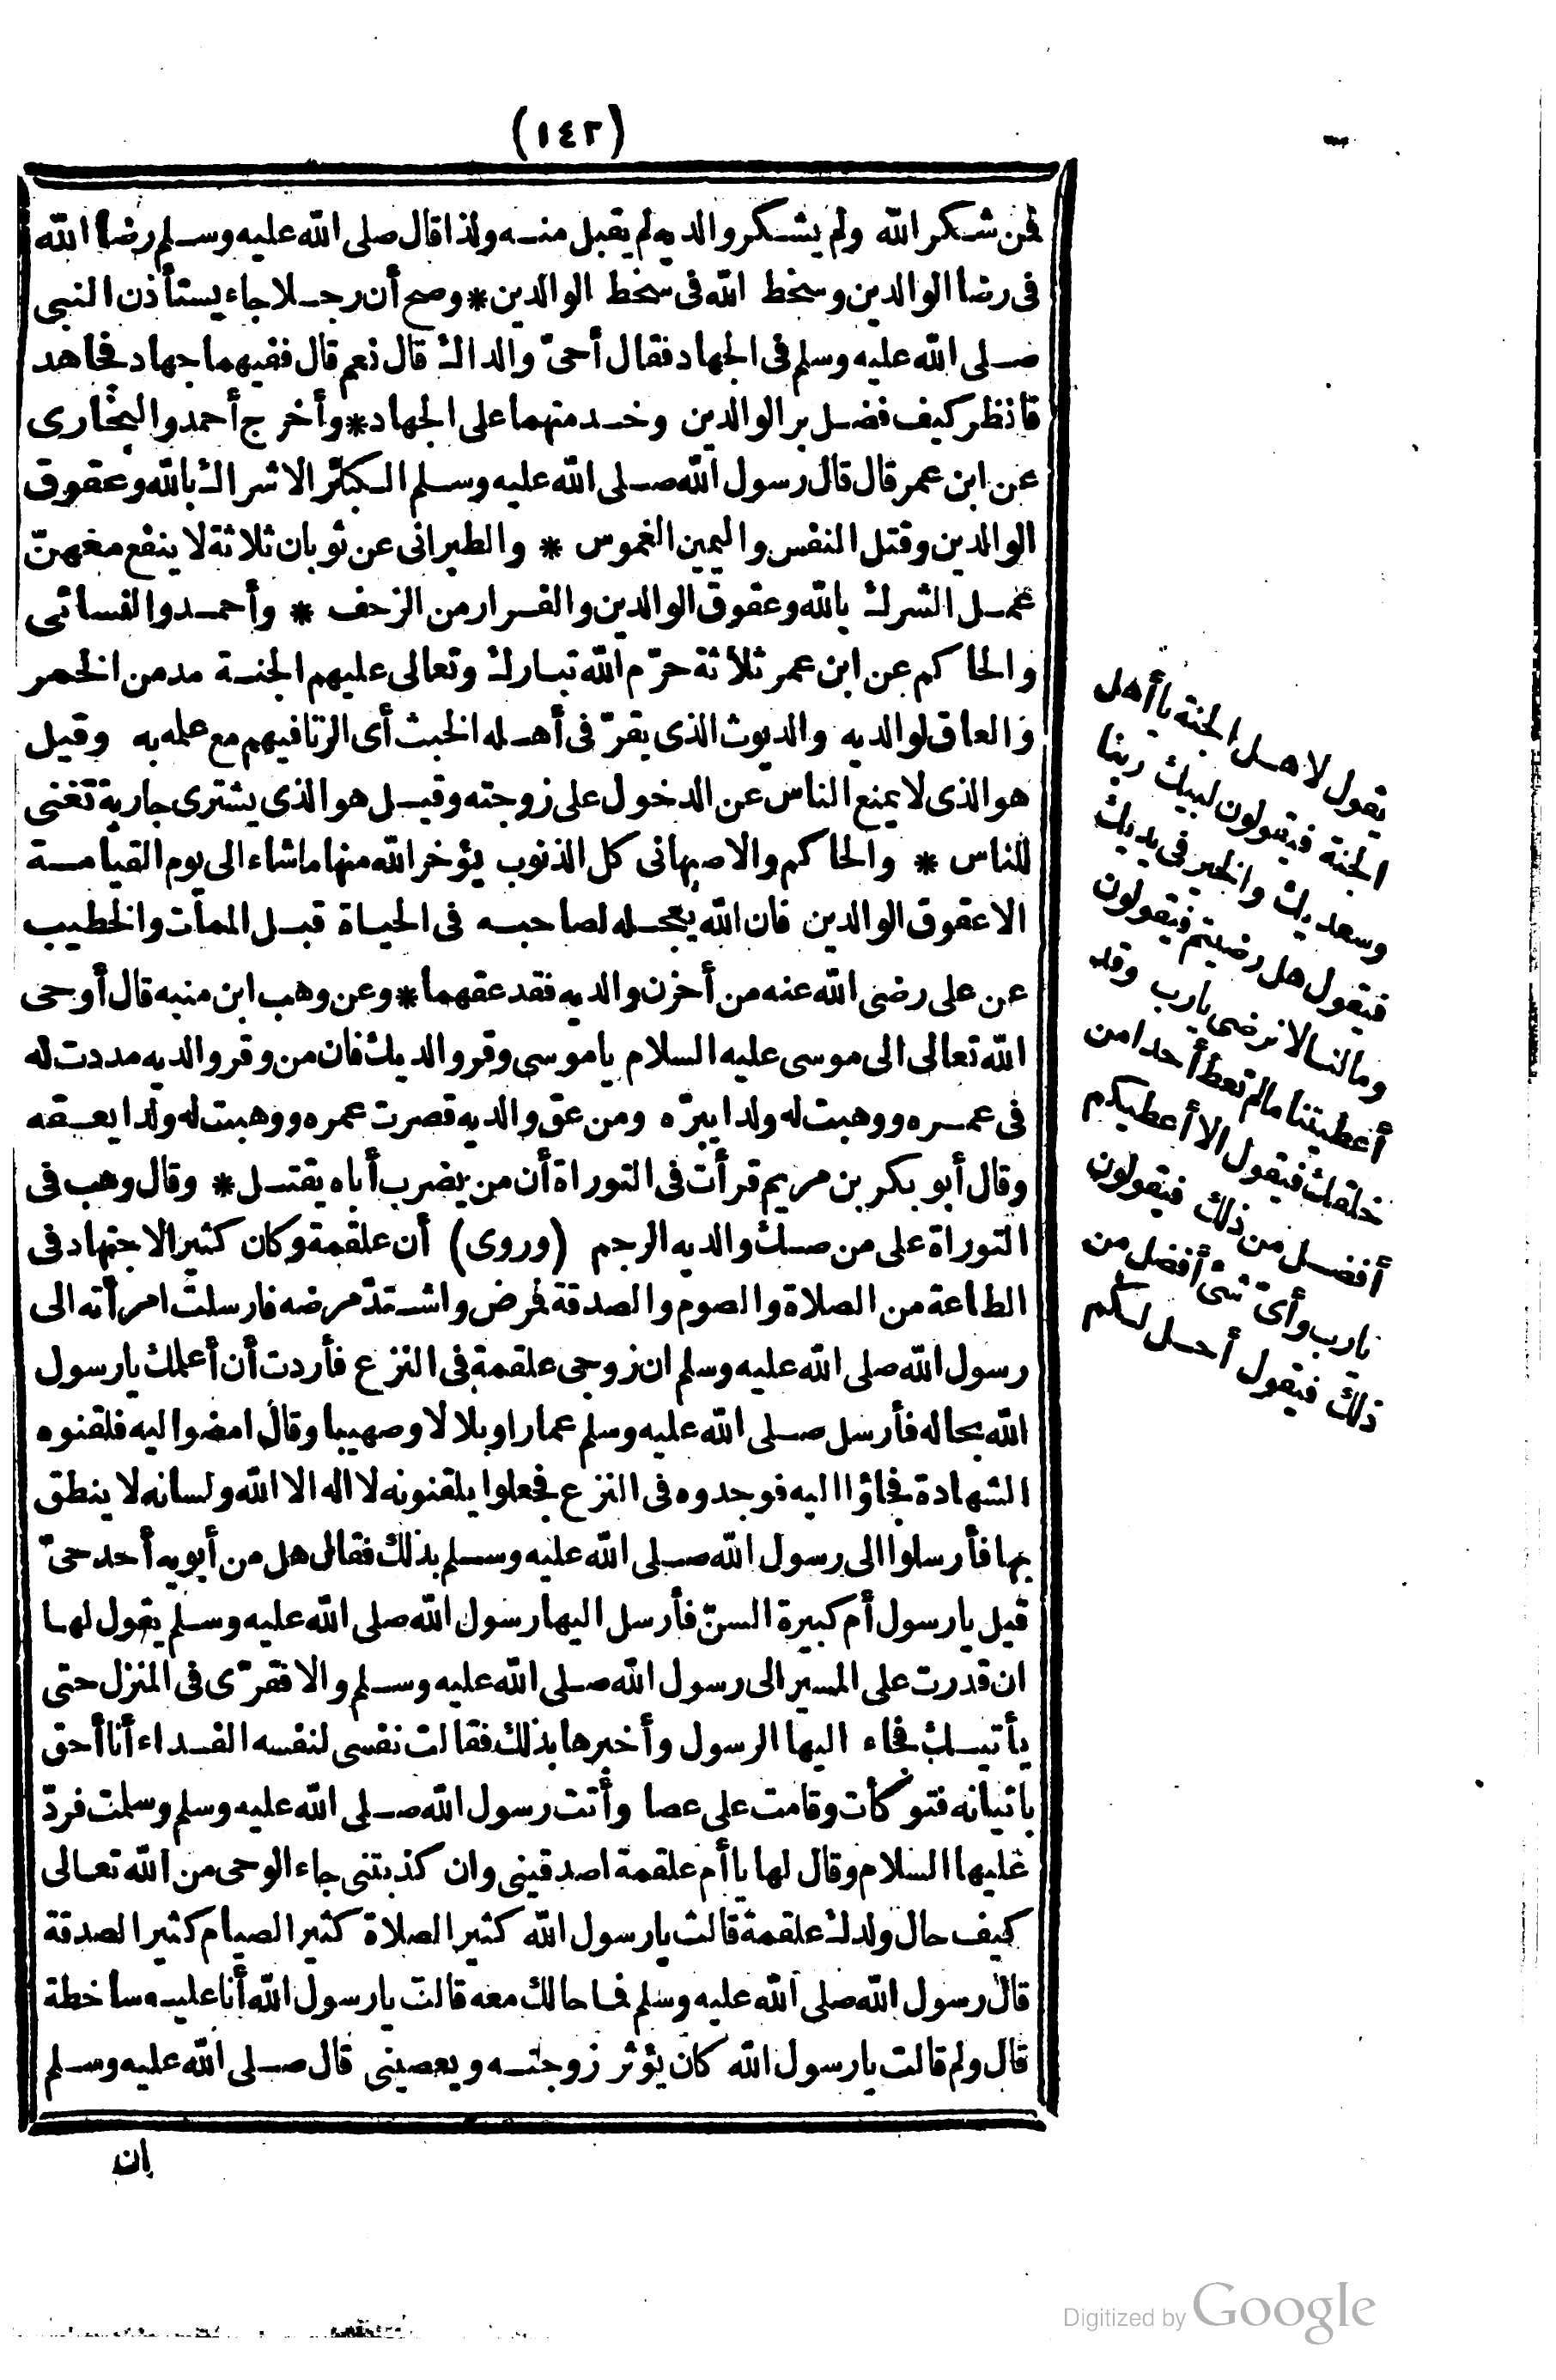 (١٤٢)
فمن شكر الله ولم يشكر والديه لم يقبل منه ولذا قال صلى الله عليه وسلم رضا الله
فى رضا الوالدين وسخط الله فى سخط الوالدين * وصح أن رجلا جاء يستأذن النبى
صلى الله عليه وسلم فى الجهاد فقال أحىّ والداك قال نعم قال ففيهما جهاد فجاهد
فانظر كيف فضل بر الوالدين وخدمتهما على الجهاد * وأخرج أحمد والبخارى
عن ابن عمر قال قال رسول الله صلى الله عليه وسلم الكبائر الاشراك بالله وعقوق
الوالدين وقتل النفس واليمين الغموس * والطبرانى عن ثوبان ثلاثة لا ينفع معهنّ
عمل الشرك بالله وعقوق الوالدين والفرار من الزحف * وأحمد والنسائى
والحاكم عن ابن عمر ثلاثة حرّم الله تبارك وتعالى عليهم الجنة مدمن الخمر
والعاق لوالديه والديوث الذى يقرّ فى أهله الخبث أى الزنا فيهم مع علمه به وقيل
هو الذى لا يمنع الناس عن الدخول على زوجته وقيل هو الذى يشترى جارية تغنى
للناس * والحاكم والاصبهانى كل الذنوب يؤخر الله منها ما شاء الى يوم القيامة
الا عقوق الوالدين فان الله يعجله لصاحبه فى الحياة قبل الممات والخطيب
عن على رضى الله عنه من أحزن والديه فقد عقهما * وعن وهب ابن منبه قال أوحى
الله تعالى الى موسى عليه السلام ياموسى وقر والديك فان من وقر والديه مددت له
فى عمره ووهبت له ولدا يبرّه ومن عق والديه قصرت عمره ووهبت له ولدا يعقه
وقال أبو بكر بن مريم قرأت فى التوراة أن من يضرب أباه يقتل * وقال وهب فى
التوراة على من صك والديه الرجم (وروى) أن علقمة وكان كثير الاجتهاد فى
الطاعة من الصلاة والصوم والصدقة فمرض واشتدّ مرضه فارسلت امرأته الى
رسول الله صلى الله عليه وسلم ان زوجى علقمة فى النزع فأردت أن أعلمك يارسول
الله بحاله فأرسل صلى الله عليه وسلم عمارا وبلالا وصهيبا وقال امضوا اليه فلقنوه
الشهادة فجاؤا اليه فوجدوه فى النزع فجعلوا يلقنونه لا اله الا الله ولسانه لا ينطق
بها فأرسلوا الى رسول الله صلى الله عليه وسلم بذلك فقال هل من أبويه أحد حىّ
قيل يارسول أم كبيرة السنّ فأرسل اليها رسول الله صلى الله عليه وسلم يقول لها
ان قدرت على المسير الى رسول الله صلى الله عليه وسلم والا فقرّى فى المنزل حتى
يأتيك فجاء اليها الرسول وأخبرها بذلك فقالت نفسى لنفسه الفداء أنا أحق
باتيانه فتوكأت وقامت على عصا وأتت رسول الله صلى الله عليه وسلم وسلمت فردّ
عليها السلام وقال لها يا أم علقمة اصدقينى وان كذبتنى جاء الوحى من الله تعالى
كيف حال ولدك علقمة قالت يارسول الله كثير الصلاة كثير الصيام كثير الصدقة
قال رسول الله صلى الله عليه وسلم فما حالك معه قالت يارسول الله أنا عليه ساخطة
قال ولم قالت يارسول الله كان يؤثر زوجته ويعصينى قال صلى الله عليه وسلم
ان
يقول لاهل الجنة يا أهل
الجنة فيقولون لبيك ربنا
وسعديك والخير فى يديك
فيقول هل رضيتم فيقولون
وما لنا لا نرضى يارب وقد
أعطيتنا مالم تعط أحدا من
خلقك فيقول الا أعطيكم
أفضل من ذلك فيقولون
يارب وأىّ شئ أفضل من
ذلك فيقول أحل لكم
Digitized by Google